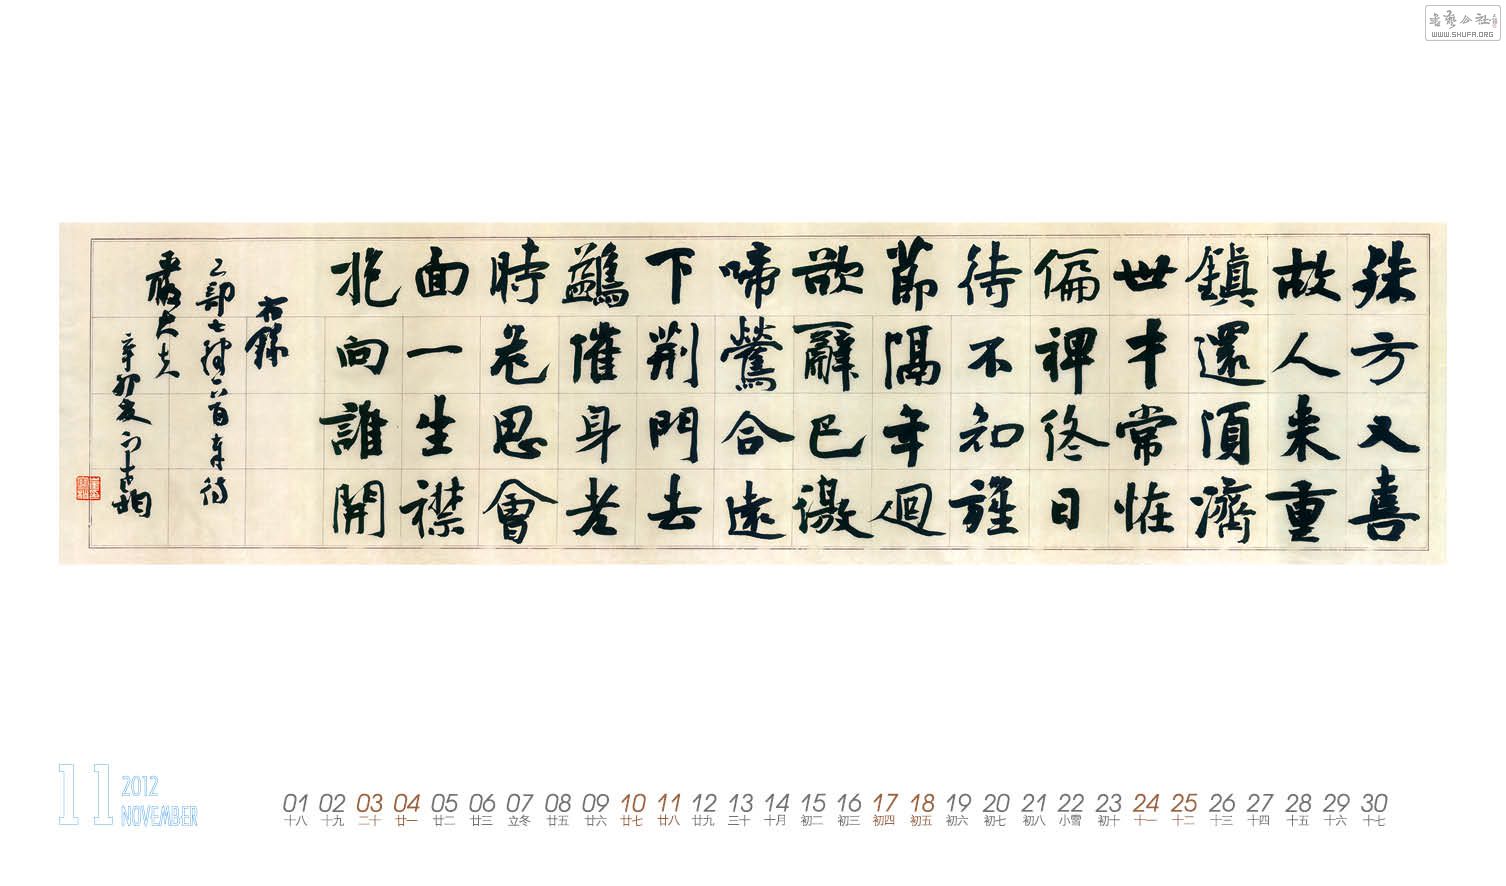 殊方又喜
故人来重
鎮還須濟
世才常恠
偏裨終日
待不知旌
節隔年迴
欲辭巴徼
啼鶯合遠
下荆門去
鷁催身老
時危思會
面一生襟
抱向誰開
右錄
工部七律一首奉待
嚴大夫
辛卯夏
WWW.SHUFA.ORG
11
2012
NOVEMBER
01 02 03 04 05 06 07 08 09 10 11 12 13 14 15 16 17 18 19 20 21 22 23 24 25 26 27 28 29 30
十八 十九 二十 廿一 廿二 廿三 立冬 廿五 廿六 廿七 廿八 廿九 三十 十月 初二 初三 初四 初五 初六 初七 初八 小雪 初十 十一 十二 十三 十四 十五 十六 十七